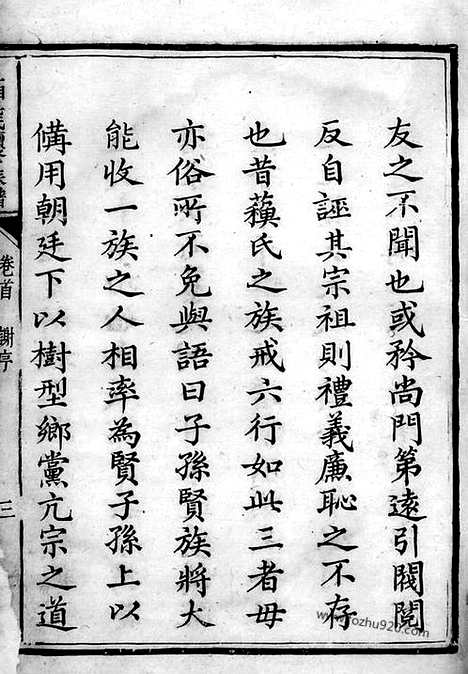 友之不聞也或矜尚門第遠引閥閱
反自誣其宗祖則禮義廉恥之不存
也昔蘓氏之族戒六行如此三者毋
亦俗所不免與語曰子孫賢族將大
能收一族之人相率為賢子孫上以
備用朝廷下以樹型鄉黨亢宗之道
卷首 謝序
三
www.fozhu920.com